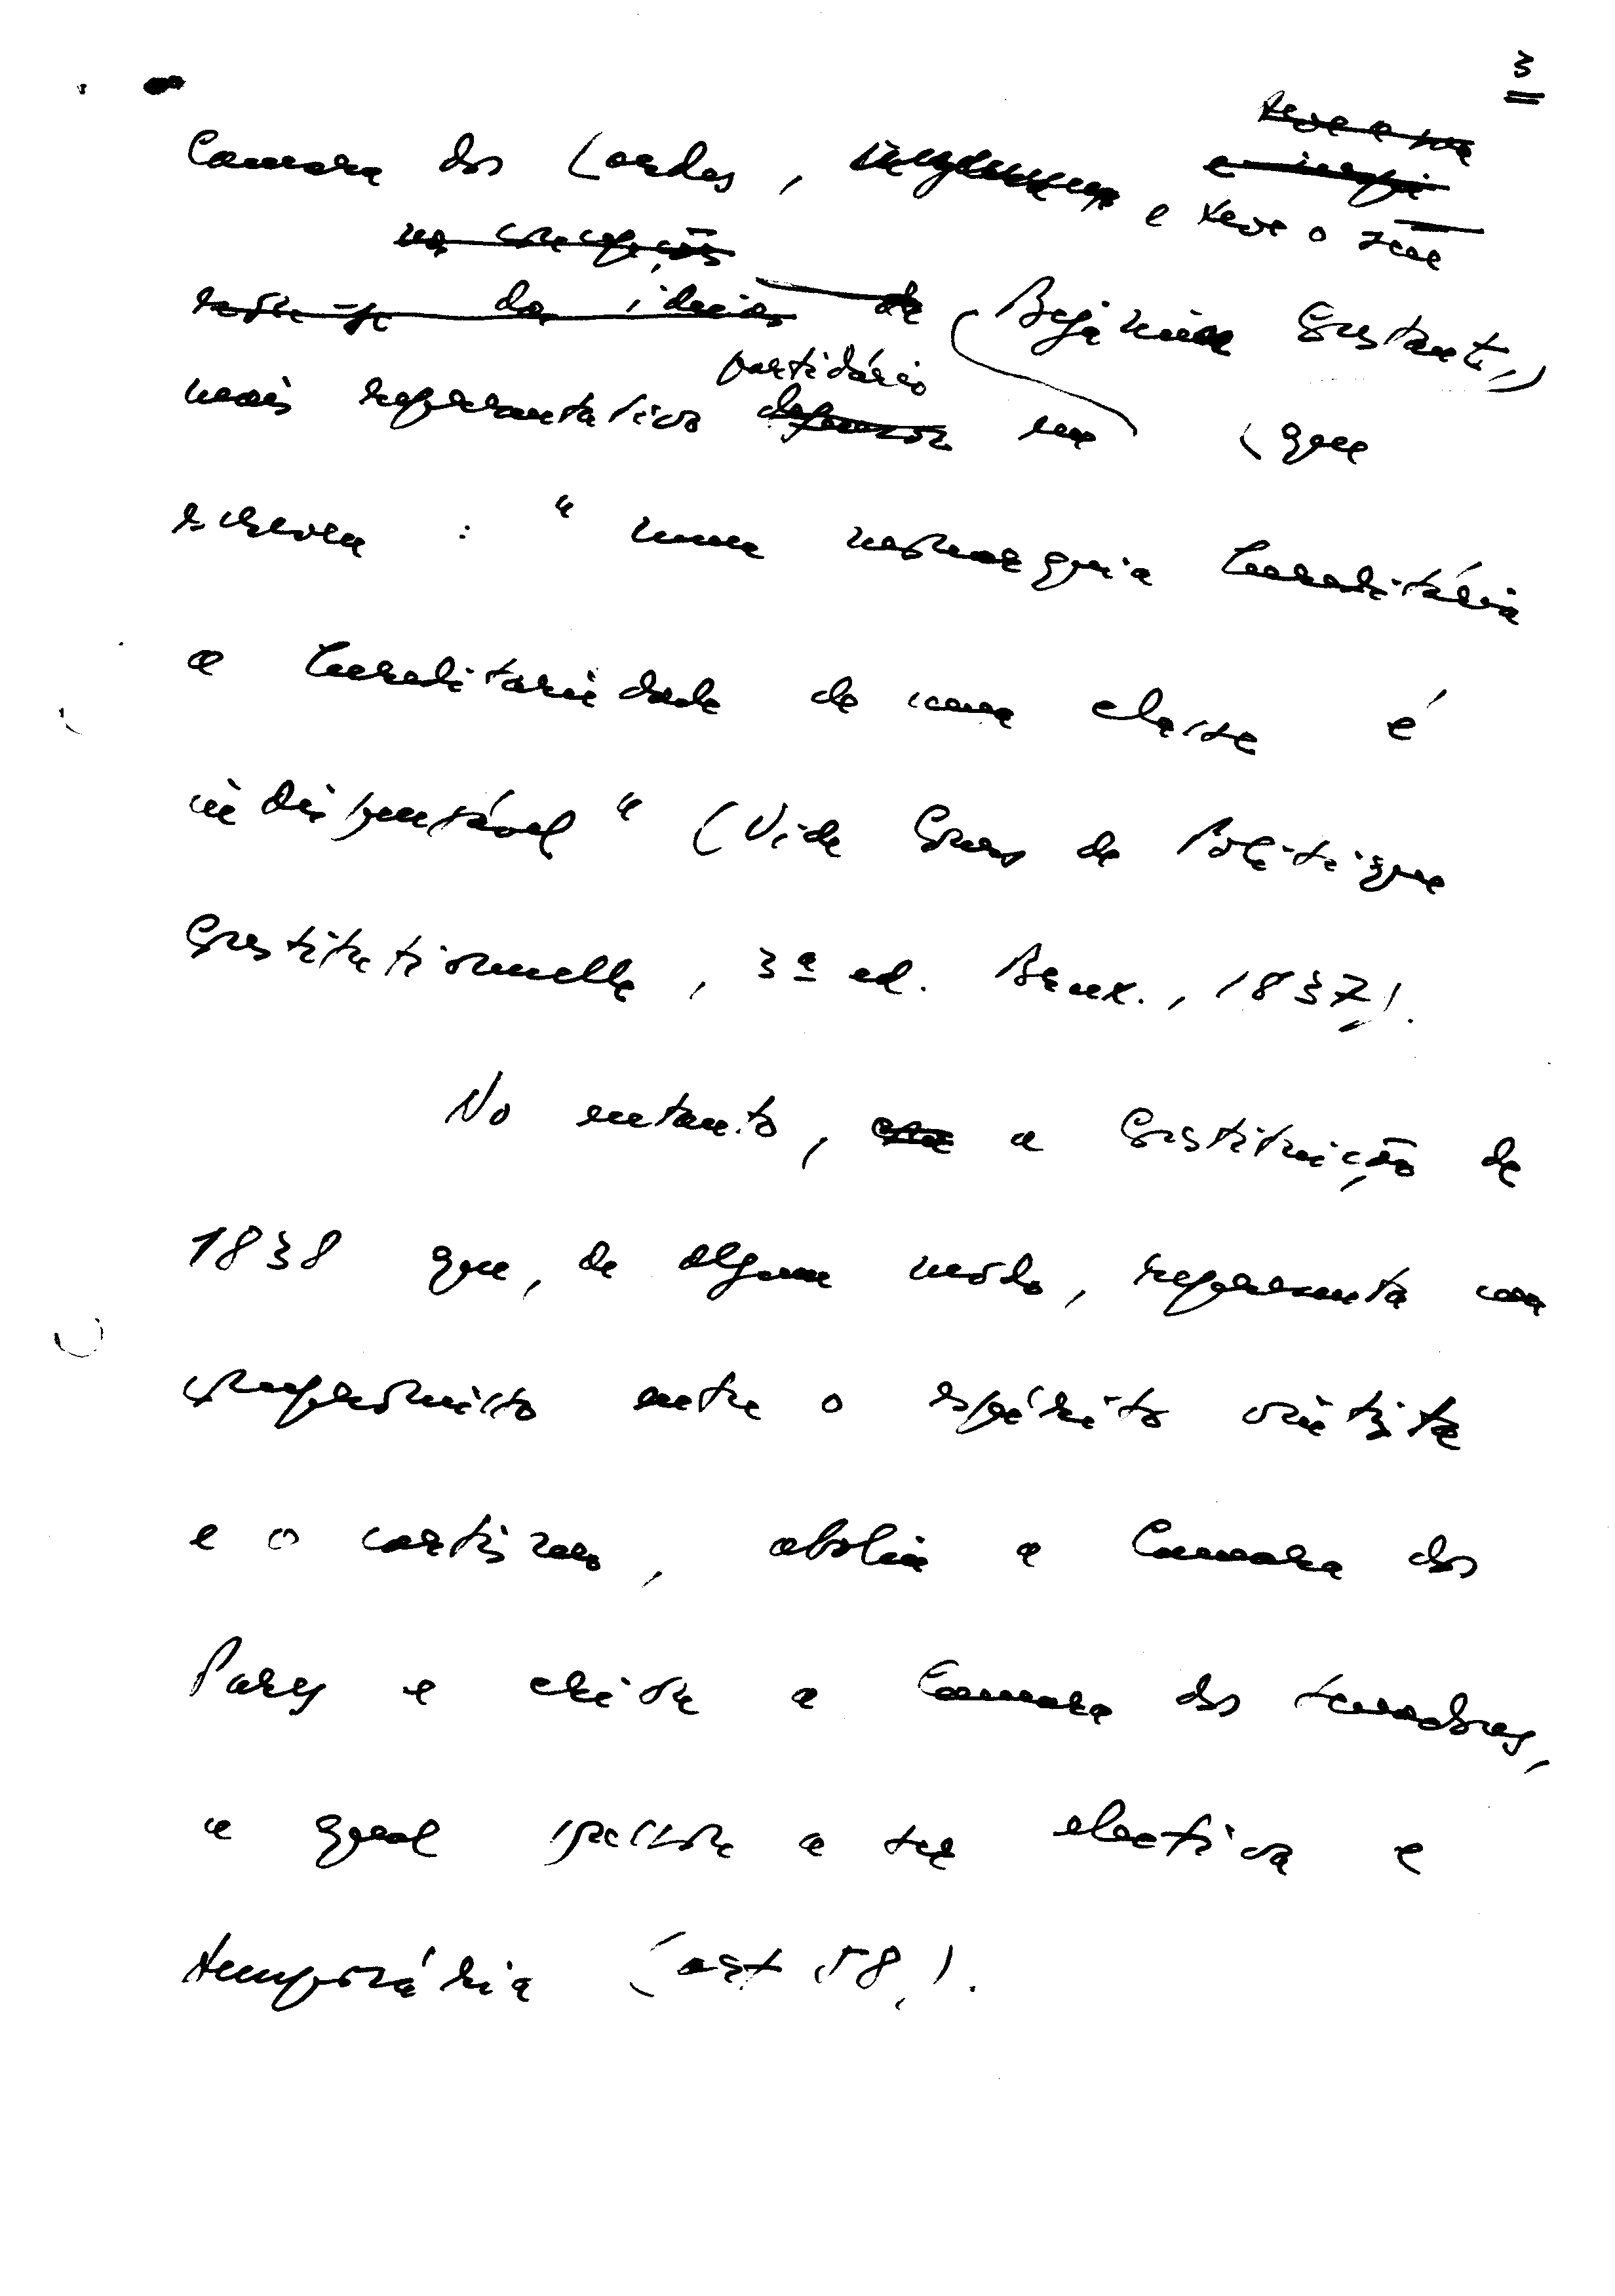 3
Camara dos Lordes, e teve o seu
Benjamim Constant,
mais representativo partidário em (que
escrevia : "numa monarquia hereditária
a hereditariedade de uma classe é
indispensável" (Vide Cours de Politique
Constitutionnelle, 3ª ed. Brux., 1837).
No entanto, a Constituição de
1838 que, de algum modo, representa um
compromisso entre o espírito vintista
e o cartismo, abolia a Camara dos
Pares e criou a Camara dos Senadores,
a qual passou a ser electiva e
temporária (art 58,).